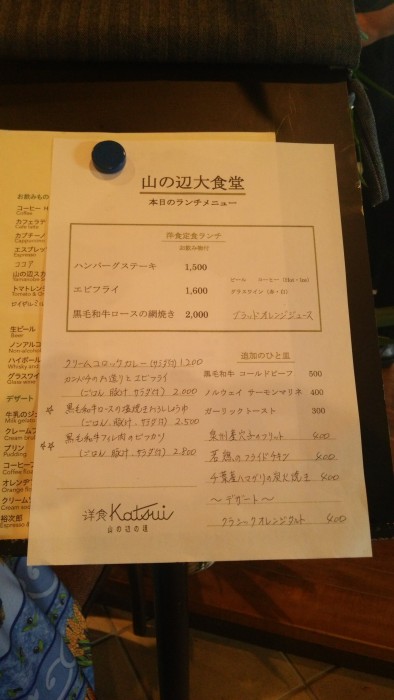 山の辺大食堂
本日のランチメニュー
洋食定食ランチ
お飲み物付
ハンバーグステーキ 1,500
エビフライ 1,600
黒毛和牛ロースの網焼き 2,000
ビール コーヒー (Hot・Ice)
グラスワイン (赤・白)
ブラッドオレンジジュース
クリームコロッケカレー (サラダ付) 1200
カンパチのお造りとエビフライ
(ごはん 豚汁 サラダ付) 2,000
黒毛和牛ロースの塩焼き
(ごはん、豚汁、サラダ付) 2,500
黒毛和牛フィレ肉のビフカツ
(ごはん 豚汁、サラダ付) 2,800
追加のひと皿
黒毛和牛 コールドビーフ 500
ノルウェイ サーモンマリネ 400
ガーリックトースト 300
泉州産穴子のフリット 400
若鶏のフライドチキン 400
千葉産ハマグリの炭火焼き 400
〜デザート〜
クラシックオレンジ 400
洋食 Katsui
山の辺の道
お飲みもの
コーヒー
Coffee
カフェラテ
カプチーノ
Cappuccino
エスプレッソ
Espresso
ココア
生ビール
Beer
ノンアルコ
Non-alcoho
ハイボール
Whisky and
グラスワイ
Glass wine
デザート
牛乳のジェ
Milk gelato
クレームブ
プリン
Pudding
コーヒーゼ
オレンジ
裕次郎